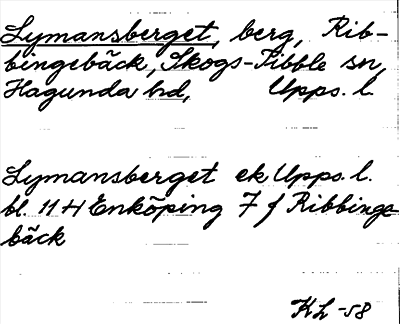 Lymansberget, berg, Rib-
bingebäck, Skogs-Tibble sn,
Hagunda hd, Upps. l.
Lymansberget ek Upps. l.
bl. 11 H Enköping 7 f Ribbinge
bäck
KL -58